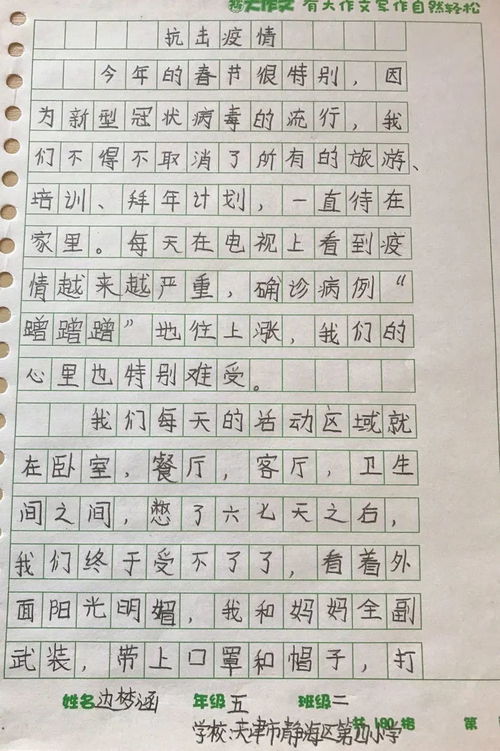 大作文 有大作文写作自然轻松
抗击疫情
今年的春节很特别，因
为新型冠状病毒的流行，我
们不得不取消了所有的旅游、
培训、拜年计划，一直待在
家里。每天在电视上看到疫
情越来越严重，确诊病例“
蹭蹭蹭”地往上涨，我们的
心里也特别难受。
我们每天的活动区域就
在卧室，餐厅，客厅，卫生
间之间，憋了六七天之后，
我们终于受不了了，看着外
面阳光明媚，我和妈妈全副
武装，带上口罩和帽子，打
姓名边梦涵 年级五 班级二
共180格 第
学校：天津市静海区第四小学